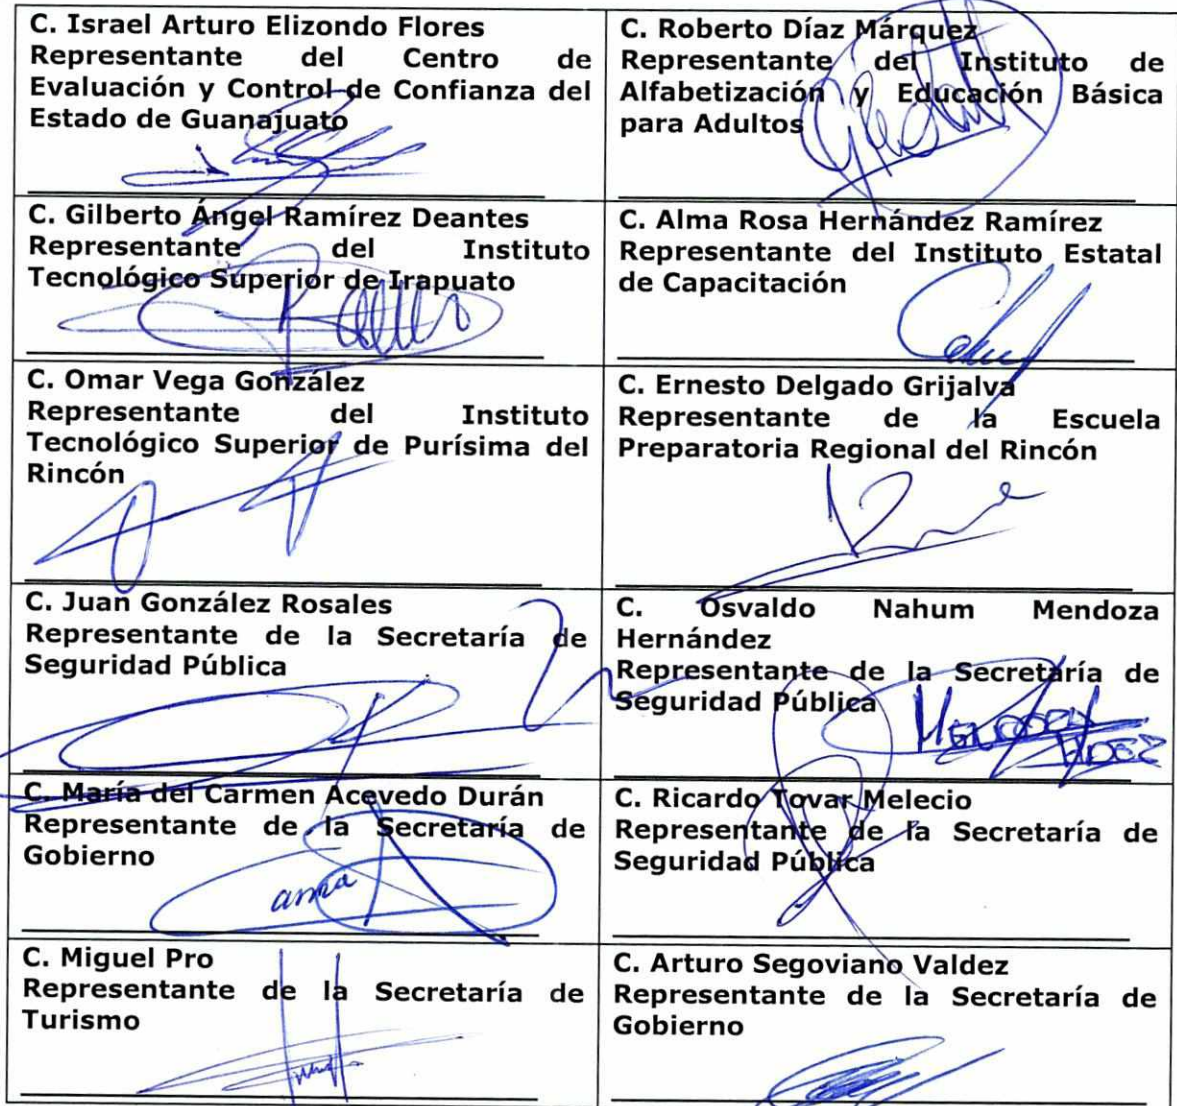 C. Israel Arturo Elizondo Flores
Representante del Centro de
Evaluación y Control de Confianza del
Estado de Guanajuato
C. Roberto Díaz Márquez
Representante del Instituto de
Alfabetización y Educación Básica
para Adultos
C. Gilberto Ángel Ramírez Deantes
Representante del Instituto
Tecnológico Superior de Irapuato
C. Alma Rosa Hernández Ramírez
Representante del Instituto Estatal
de Capacitación
C. Omar Vega González
Representante del Instituto
Tecnológico Superior de Purísima del
Rincón
C. Ernesto Delgado Grijalva
Representante de la Escuela
Preparatoria Regional del Rincón
C. Juan González Rosales
Representante de la Secretaría de
Seguridad Pública
C. Osvaldo Nahum Mendoza
Hernández
Representante de la Secretaría de
Seguridad Pública
C. María del Carmen Acevedo Durán
Representante de la Secretaría de
Gobierno
C. Ricardo Tovar Melecio
Representante de la Secretaría de
Seguridad Pública
C. Miguel Pro
Representante de la Secretaría de
Turismo
C. Arturo Segoviano Valdez
Representante de la Secretaría de
Gobierno